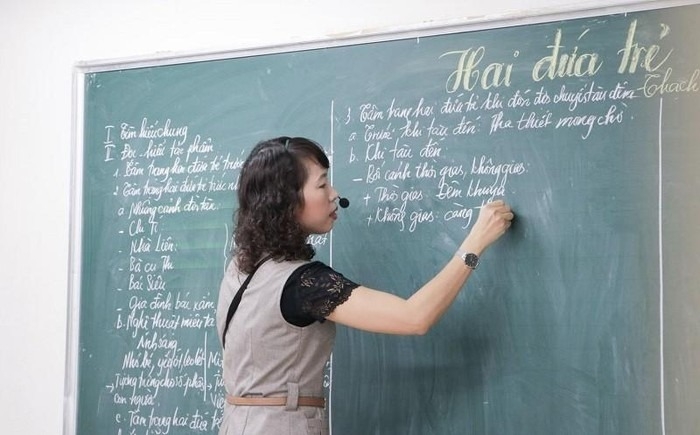 Hai đứa trẻ
- Thạch
I Tìm hiểu chung
II Đọc - hiểu tác phẩm
1. Tâm trạng hai đứa trẻ trước
2. Tâm trạng hai đứa trẻ trước
a. Những cảnh đời tàn
- Chị Tí
- Nhà Liên:
- Bà cụ Thi
- Bác Siêu
- Gia đình bác xẩm
b. Nghệ thuật miêu tả
Ánh sáng
Nhỏ bé, yếu ớt
→ Tượng trưng cho số phận
con người
c. Tâm trạng hai đứa trẻ
3. Tâm trạng hai đứa trẻ khi đón đợi chuyến tàu đêm
a. Trước khi tàu đến: Tha thiết mong chờ
b. Khi tàu đến
- Bối cảnh thời gian, không gian:
+ Thời gian: Đêm khuya
+ Không gian: càng